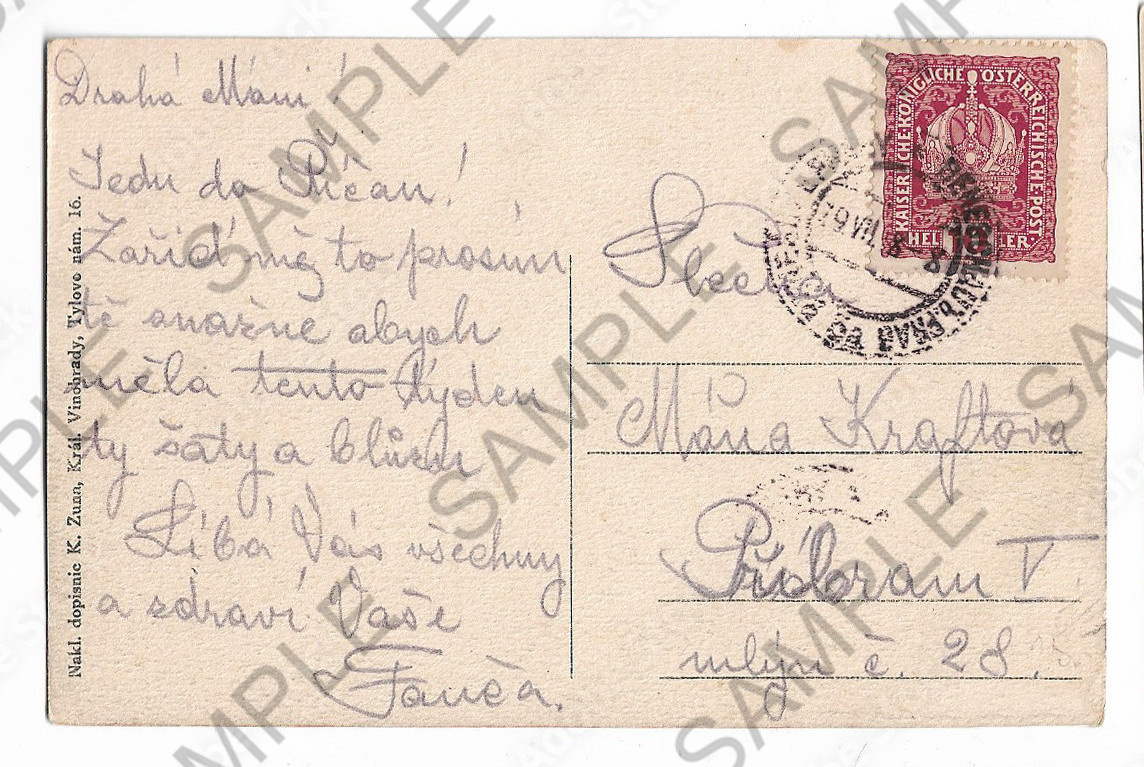 Drahá Máni!
Jedu do Říčan!
Zařiď mě to prosím
tě snažně abych
měla tento týden
ty šaty a blůzu
Líbá Vás všechny
a zdraví Vaše
Fanča.
Nakl. dopisnic K. Zuna, Král. Vinohrady, Tylovo nám. 16.
KAISERLICHE·KÖNIGLICHE ÖSTERREICHISCHE·POST
HELLER 10
Slečna
Máňa Kraftová
Příbram V.
mlýn č. 28.
SAMPLE